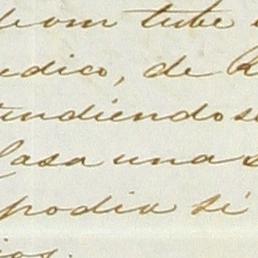 tube
edico, de
tendiendos
Casa unas
podia si